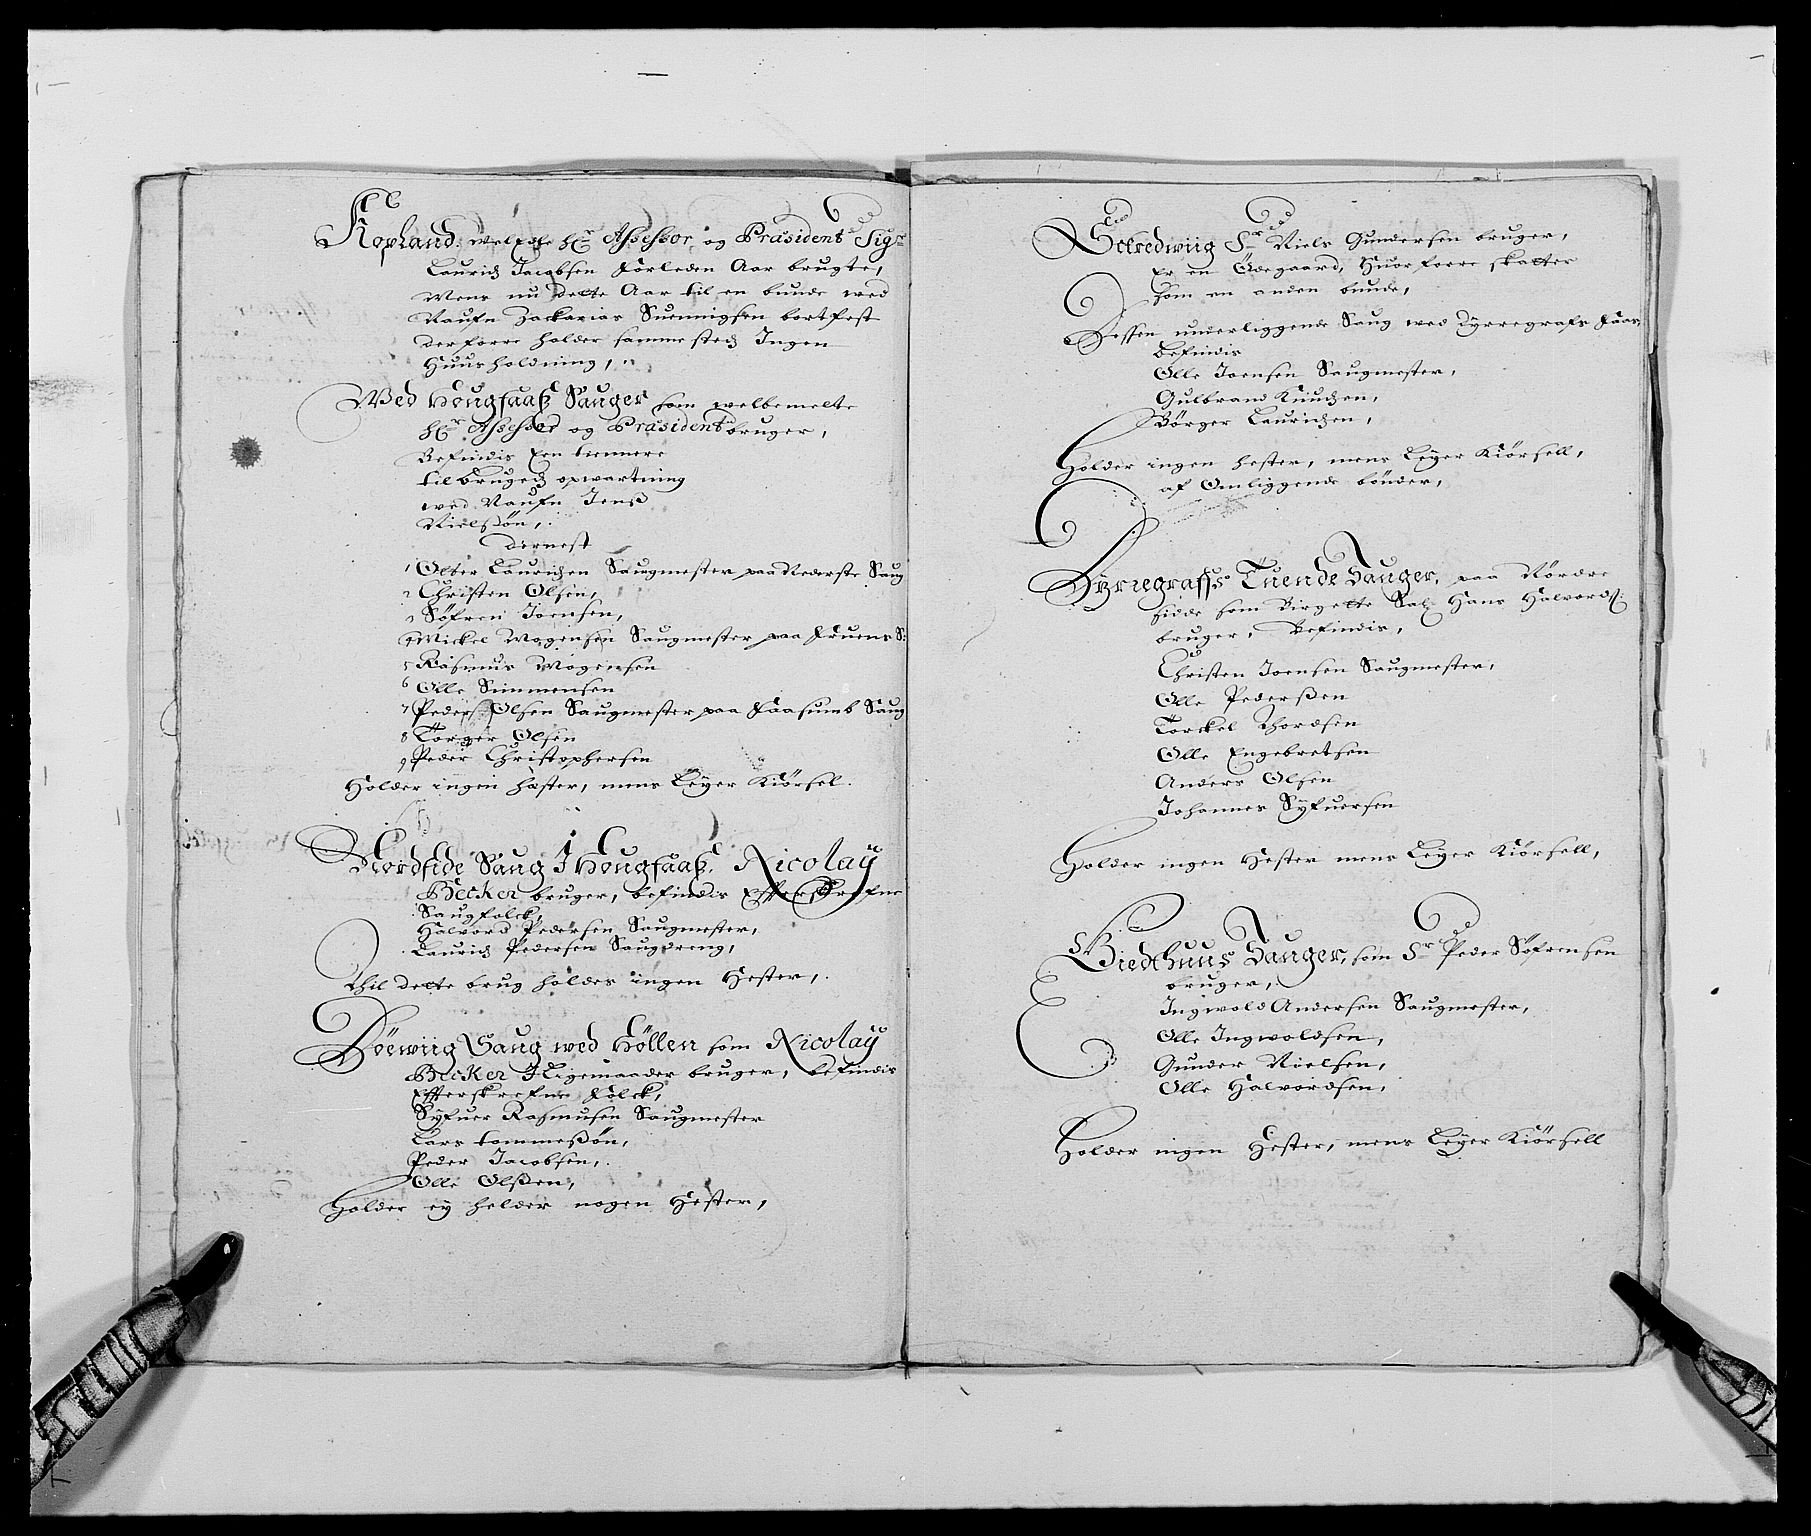 Kopland, welEdle hr Assessor og Præsident Sigr
Lauridz Jacobsen forleden Aar brugte,
Mens nu dette Aar til en bunde wed
Naufn Zackarias Suennigsen bortfest
derforre holder sammesteds Ingen
Huusholdning,
Wed Hougfaaß Sauger som welbemelte
hr Assessor og Præsident bruger,
Befindis Een tiennere
til brugeds opwartning
wed Naufn Jens
Nielßøn,
dernest
1 Olter Lauridzen Saugmester paa Nederste Saug
2 Christen Olsen,
3 Søfren Joensen,
4 Mickel Mogensen Saugmester paa Fruens S:
5 Rasmus Mogensen
6 Olle Simmensen
7 Peder Olsen Saugmester paa Faasumb Saug
8 Torger Olsen
9 Peder Christophersen
Holder ingen hæster, mens Leyer Kiørsel.
Nordside Saug I Hougfaaß. Nicolaÿ
Becker bruger, befindis Effterskrefne
Saugfolck,
Halvord Pedersen Saugmester,
Lauridz Pedersen Saugdreng,
Thil dette brug holdes ingen Hester,
Döewiig Saug wed Höllen som Nicolaÿ
Becker I Ligemaader bruger, befindis
Effterskrefne Folck,
Syfuer Rasmusen Saugmester
Lars tommeßøn,
Peder Jacobsen,
Olle Olßen,
Holder ey heller nogen Hester,
Sr Niels Gundersen bruger,
Er en Ödegaard, Huorforre skatter
som en anden bunde,
Dessen underliggende Saug wed Dyrregrafs Faas
befindis
Olle Joensen Saugmester,
Gulbrand Knudzen,
Börger Lauridzen,
Holder ingen hester, mens Leyer Kiörsell,
af Omliggende bönder,
Dyrregraffs Tuende Sauger, paa Nordre
siide som Birgette Sal: Hans Halvordß:
bruger, befindis,
Christen Joensen Saugmester,
Olle Pederßen
Torckel Thordsen
Olle Engebretsen
Anders Olsen
Johannes Syfuersen
Holder ingen Hester mens Leyer Kiörsell,
Biedthuus Sauger, som Sr Peder Söfrensen
bruger,
Ingwold Andersen Saugmester,
Olle Ingwoldsen,
Gunder Nielsen,
Olle Halvordsen,
Holder ingen Hester, mens Leyer Kiörsell